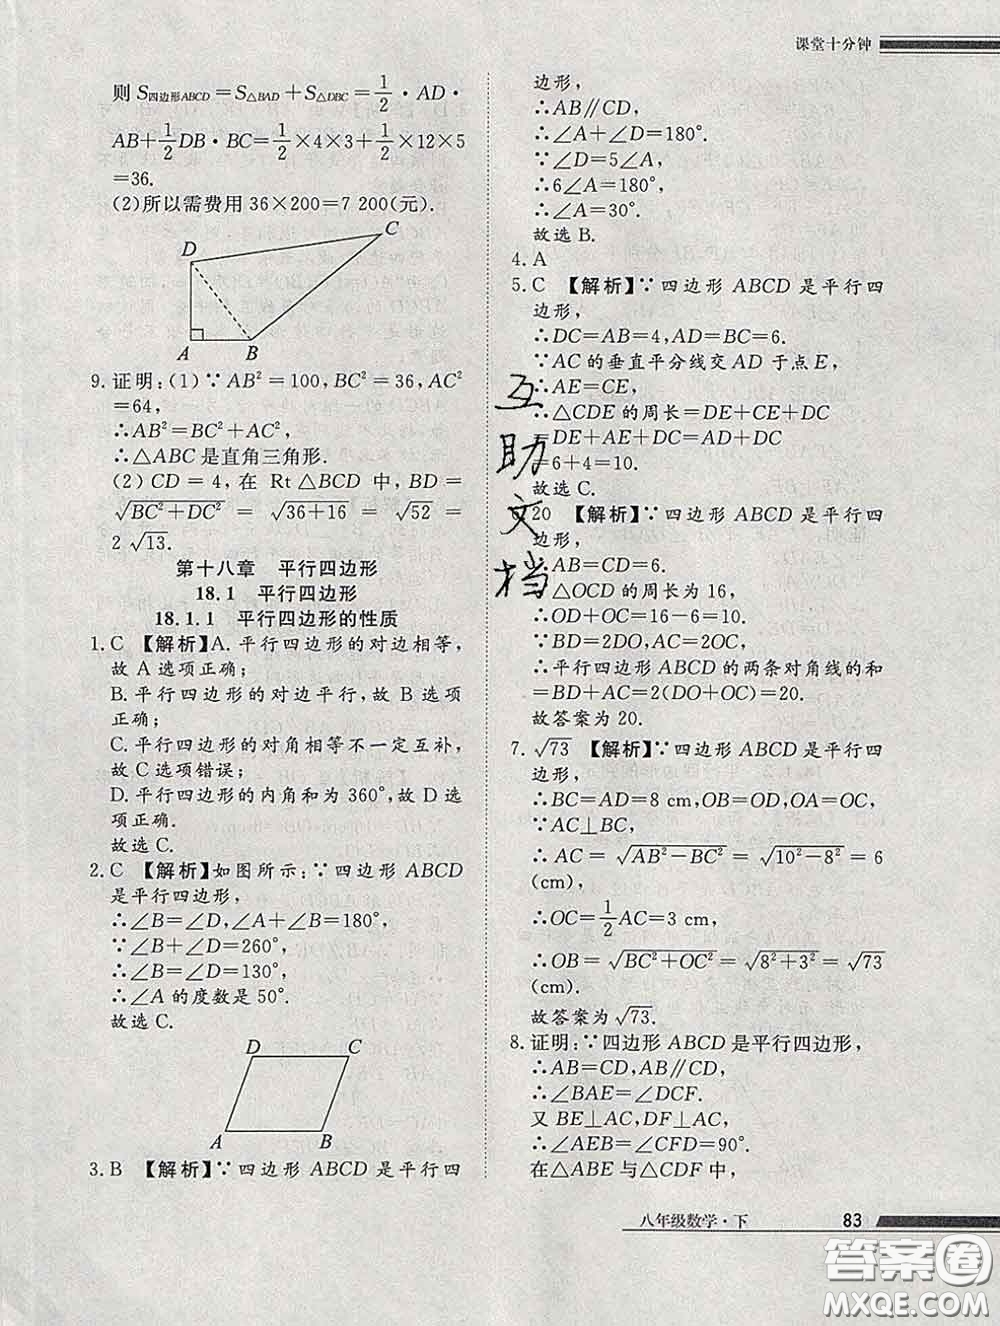 课堂十分钟
则 S四边形ABCD＝S△BAD＋S△DBC＝1/2·AD·
AB＋1/2DB·BC＝1/2×4×3＋1/2×12×5
＝36.
(2)所以需费用 36×200＝7 200(元).
D
C
A
B
9. 证明：(1)∵AB²＝100，BC²＝36，AC²
＝64，
∴AB²＝BC²＋AC²，
∴△ABC是直角三角形.
(2) CD＝4，在 Rt△BCD 中，BD＝
√(BC²＋DC²)＝√(36＋16)＝√52＝
2√13.
第十八章 平行四边形
18.1 平行四边形
18.1.1 平行四边形的性质
1. C 【解析】A. 平行四边形的对边相等，
故 A 选项正确；
B. 平行四边形的对边平行，故 B 选项
正确；
C. 平行四边形的对角相等不一定互补，
故 C 选项错误；
D. 平行四边形的内角和为 360°，故 D 选
项正确.
故选 C.
2. C 【解析】如图所示：∵四边形 ABCD
是平行四边形，
∴∠B＝∠D，∠A＋∠B＝180°，
∵∠B＋∠D＝260°，
∴∠B＝∠D＝130°，
∴∠A 的度数是 50°.
故选 C.
D
C
A
B
3. B 【解析】∵四边形 ABCD 是平行四
边形，
∴AB∥CD，
∴∠A＋∠D＝180°.
∵∠D＝5∠A，
∴6∠A＝180°，
∴∠A＝30°.
故选 B.
4. A
5. C 【解析】∵四边形 ABCD 是平行四
边形，
∴DC＝AB＝4，AD＝BC＝6.
∵AC 的垂直平分线交 AD 于点 E，
∴AE＝CE，
∴△CDE 的周长＝DE＋CE＋DC
＝DE＋AE＋DC＝AD＋DC
＝6＋4＝10.
故选 C.
6. 20 【解析】∵四边形 ABCD 是平行四
边形，
∴AB＝CD＝6.
∵△OCD 的周长为 16，
∴OD＋OC＝16－6＝10.
∵BD＝2DO，AC＝2OC，
∴平行四边形 ABCD 的两条对角线的和
＝BD＋AC＝2(DO＋OC)＝20.
故答案为 20.
7. √73 【解析】∵四边形 ABCD 是平行四
边形，
∴BC＝AD＝8 cm，OB＝OD，OA＝OC，
∵AC⊥BC，
∴AC＝√(AB²－BC²)＝√(10²－8²)＝6
(cm)，
∴OC＝1/2AC＝3 cm，
∴OB＝√(BC²＋OC²)＝√(8²＋3²)＝√73
(cm).
故答案为√73.
8. 证明：∵四边形 ABCD 是平行四边形，
∴AB＝CD，AB∥CD，
∴∠BAE＝∠DCF.
又 BE⊥AC，DF⊥AC，
∴∠AEB＝∠CFD＝90°.
在△ABE 与△CDF 中，
互助文档
八年级数学·下 83
答案圈
MXQE.COM